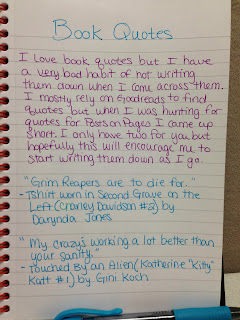 Book Quotes
I love book quotes but I have
a very bad habit of not writing
them down when I come across them.
I mostly rely on Goodreads to find
quotes but when I was hunting for
quotes for Posts on Pages I came up
short. I only have two for you but
hopefully this will encourage me to
start writing them down as I go.
"Grim Reapers are to die for."
- Tshirt worn in Second Grave on the
Left (Charley Davidson #2) by
Darynda Jones
"My crazy's working a lot better than
your sanity."
- Touched By an Alien (Katherine "Kitty"
Katt #1) by Gini Koch